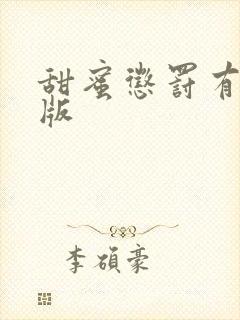 甜蜜懲罰有
版
李碩豪